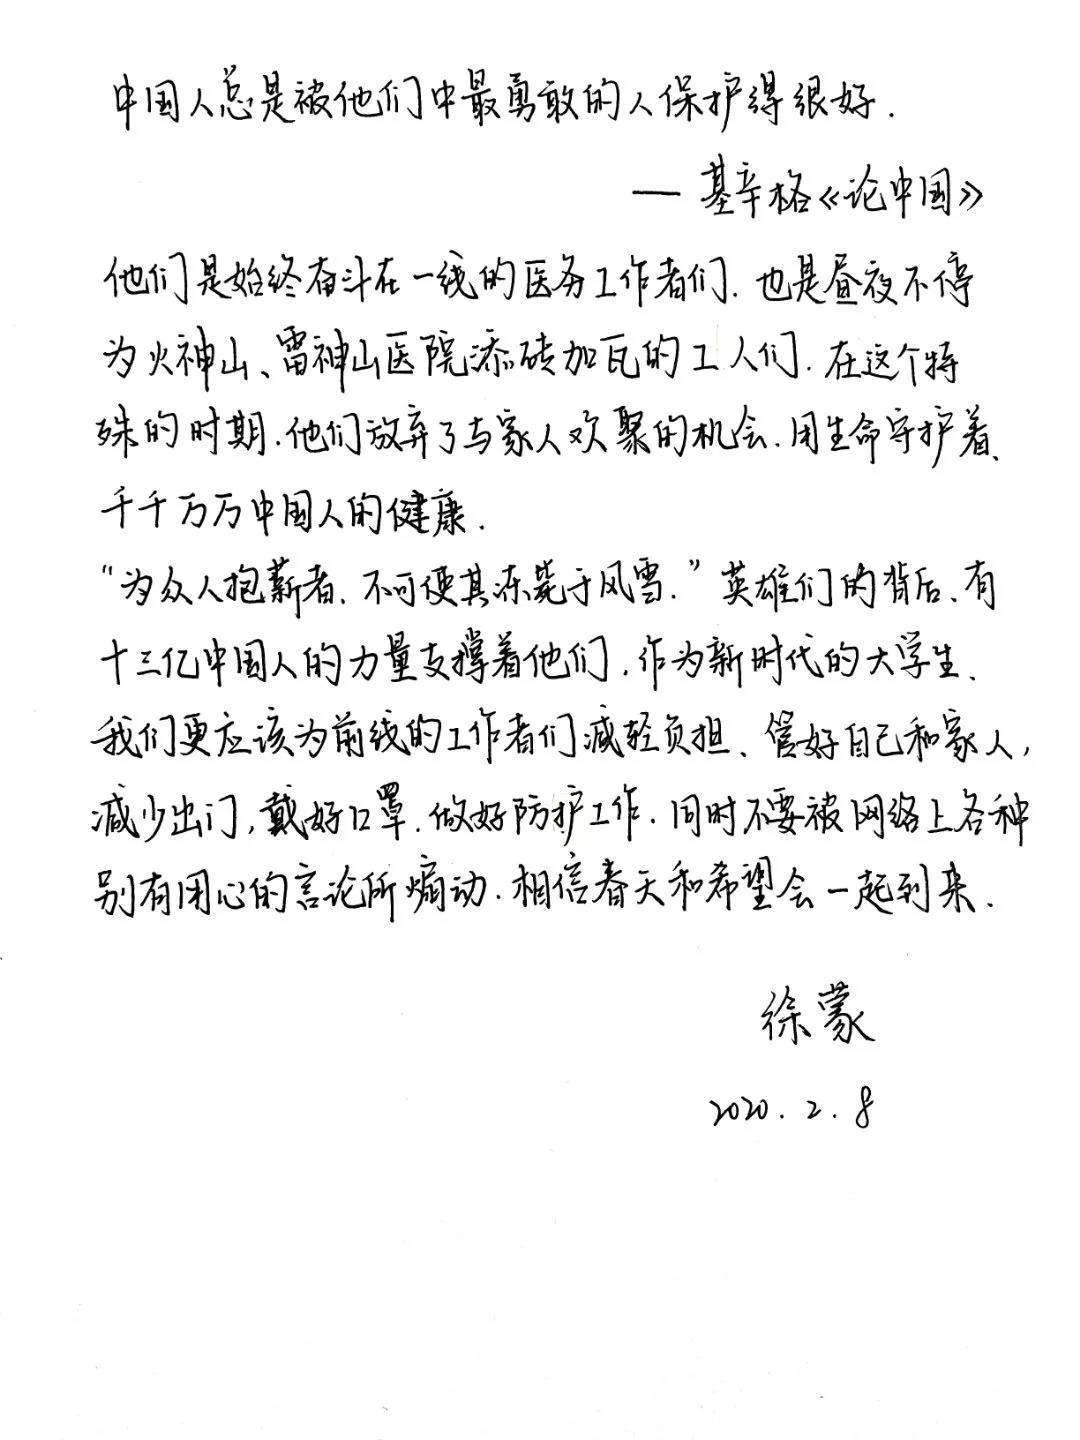 中国人总是被他们中最勇敢的人保护得很好.
— 基辛格《论中国》
他们是始终奋斗在一线的医务工作者们.也是昼夜不停
为火神山、雷神山医院添砖加瓦的工人们.在这个特
殊的时期.他们放弃了与家人欢聚的机会.用生命守护着、
千千万万中国人的健康.
“为众人抱薪者.不可使其冻毙于风雪.”英雄们的背后、有
十三亿中国人的力量支撑着他们.作为新时代的大学生、
我们更应该为前线的工作者们减轻负担、管好自己和家人,
减少出门,戴好口罩.做好防护工作.同时不要被网络上各种
别有用心的言论所煽动.相信春天和希望会一起到来.
徐蒙
2020.2.8